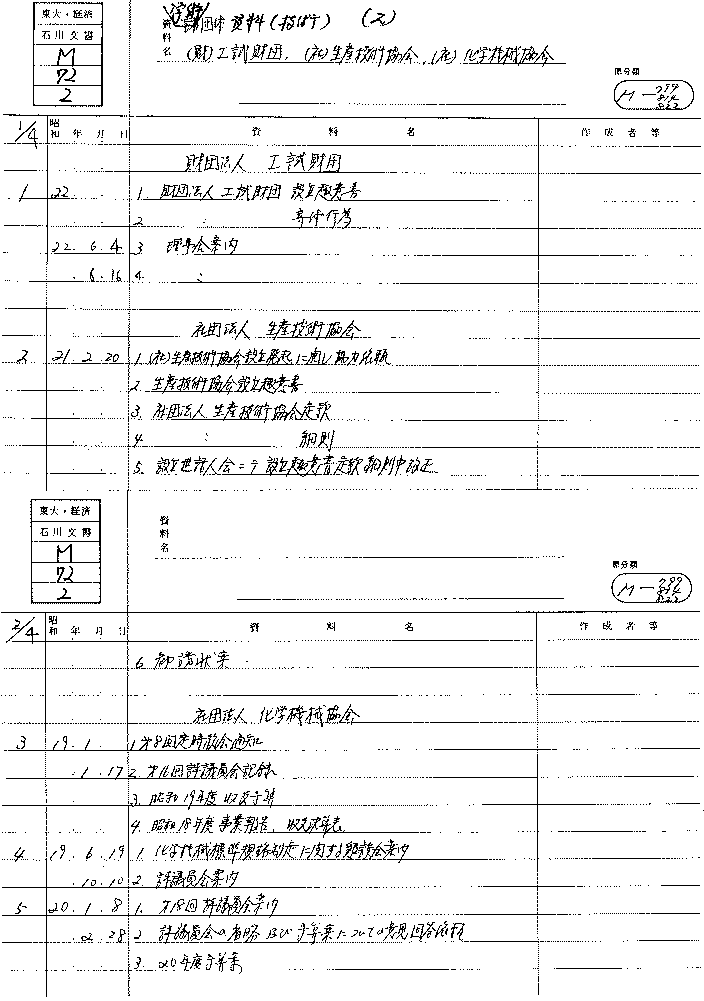 東大・経済
石川文書
M
72
2
資料名
財団体資料(技術)(2)
(財)工試財団,(社)生産技術協会,(社)化学機械協会
原分類
M-
1/4
昭和 年 月 日 資料名 作成者等
財団法人 工試財団
1 22 1. 財団法人工試財団 設立趣意書
2 〃 寄付行為
22. 6. 4 3 理事会案内
. 6. 16 4. 〃
社団法人 生産技術協会
2 21 2. 20 1 (社)生産技術協会設立発起に関し協力依頼
2 生産技術協会設立趣意書
3. 社団法人生産技術協会定款
4 〃 細則
5. 設立世話人会ニテ設立趣意書定款細則中改正
東大・経済
石川文書
M
72
2
資料名
原分類
M-
2/4
昭和 年 月 日 資料名 作成者等
6. 御請状案
社団法人 化学機械協会
3 19. 1. 1 第8回定時総会通知
. 1. 17 2. 第16回評議員会記録
3. 昭和19年度収支予算
4. 昭和18年度事業報告、収支決算表
4 19. 6. 19 1. 化学機械標準規格制定に関する懇談会案内
. 10. 10 2. 評議員会案内
5 20. 1. 8 1. 第18回評議員会案内
. 2. 28 2 評議員会の省略及び予算案についての意見回答依頼
3. 20年度予算案